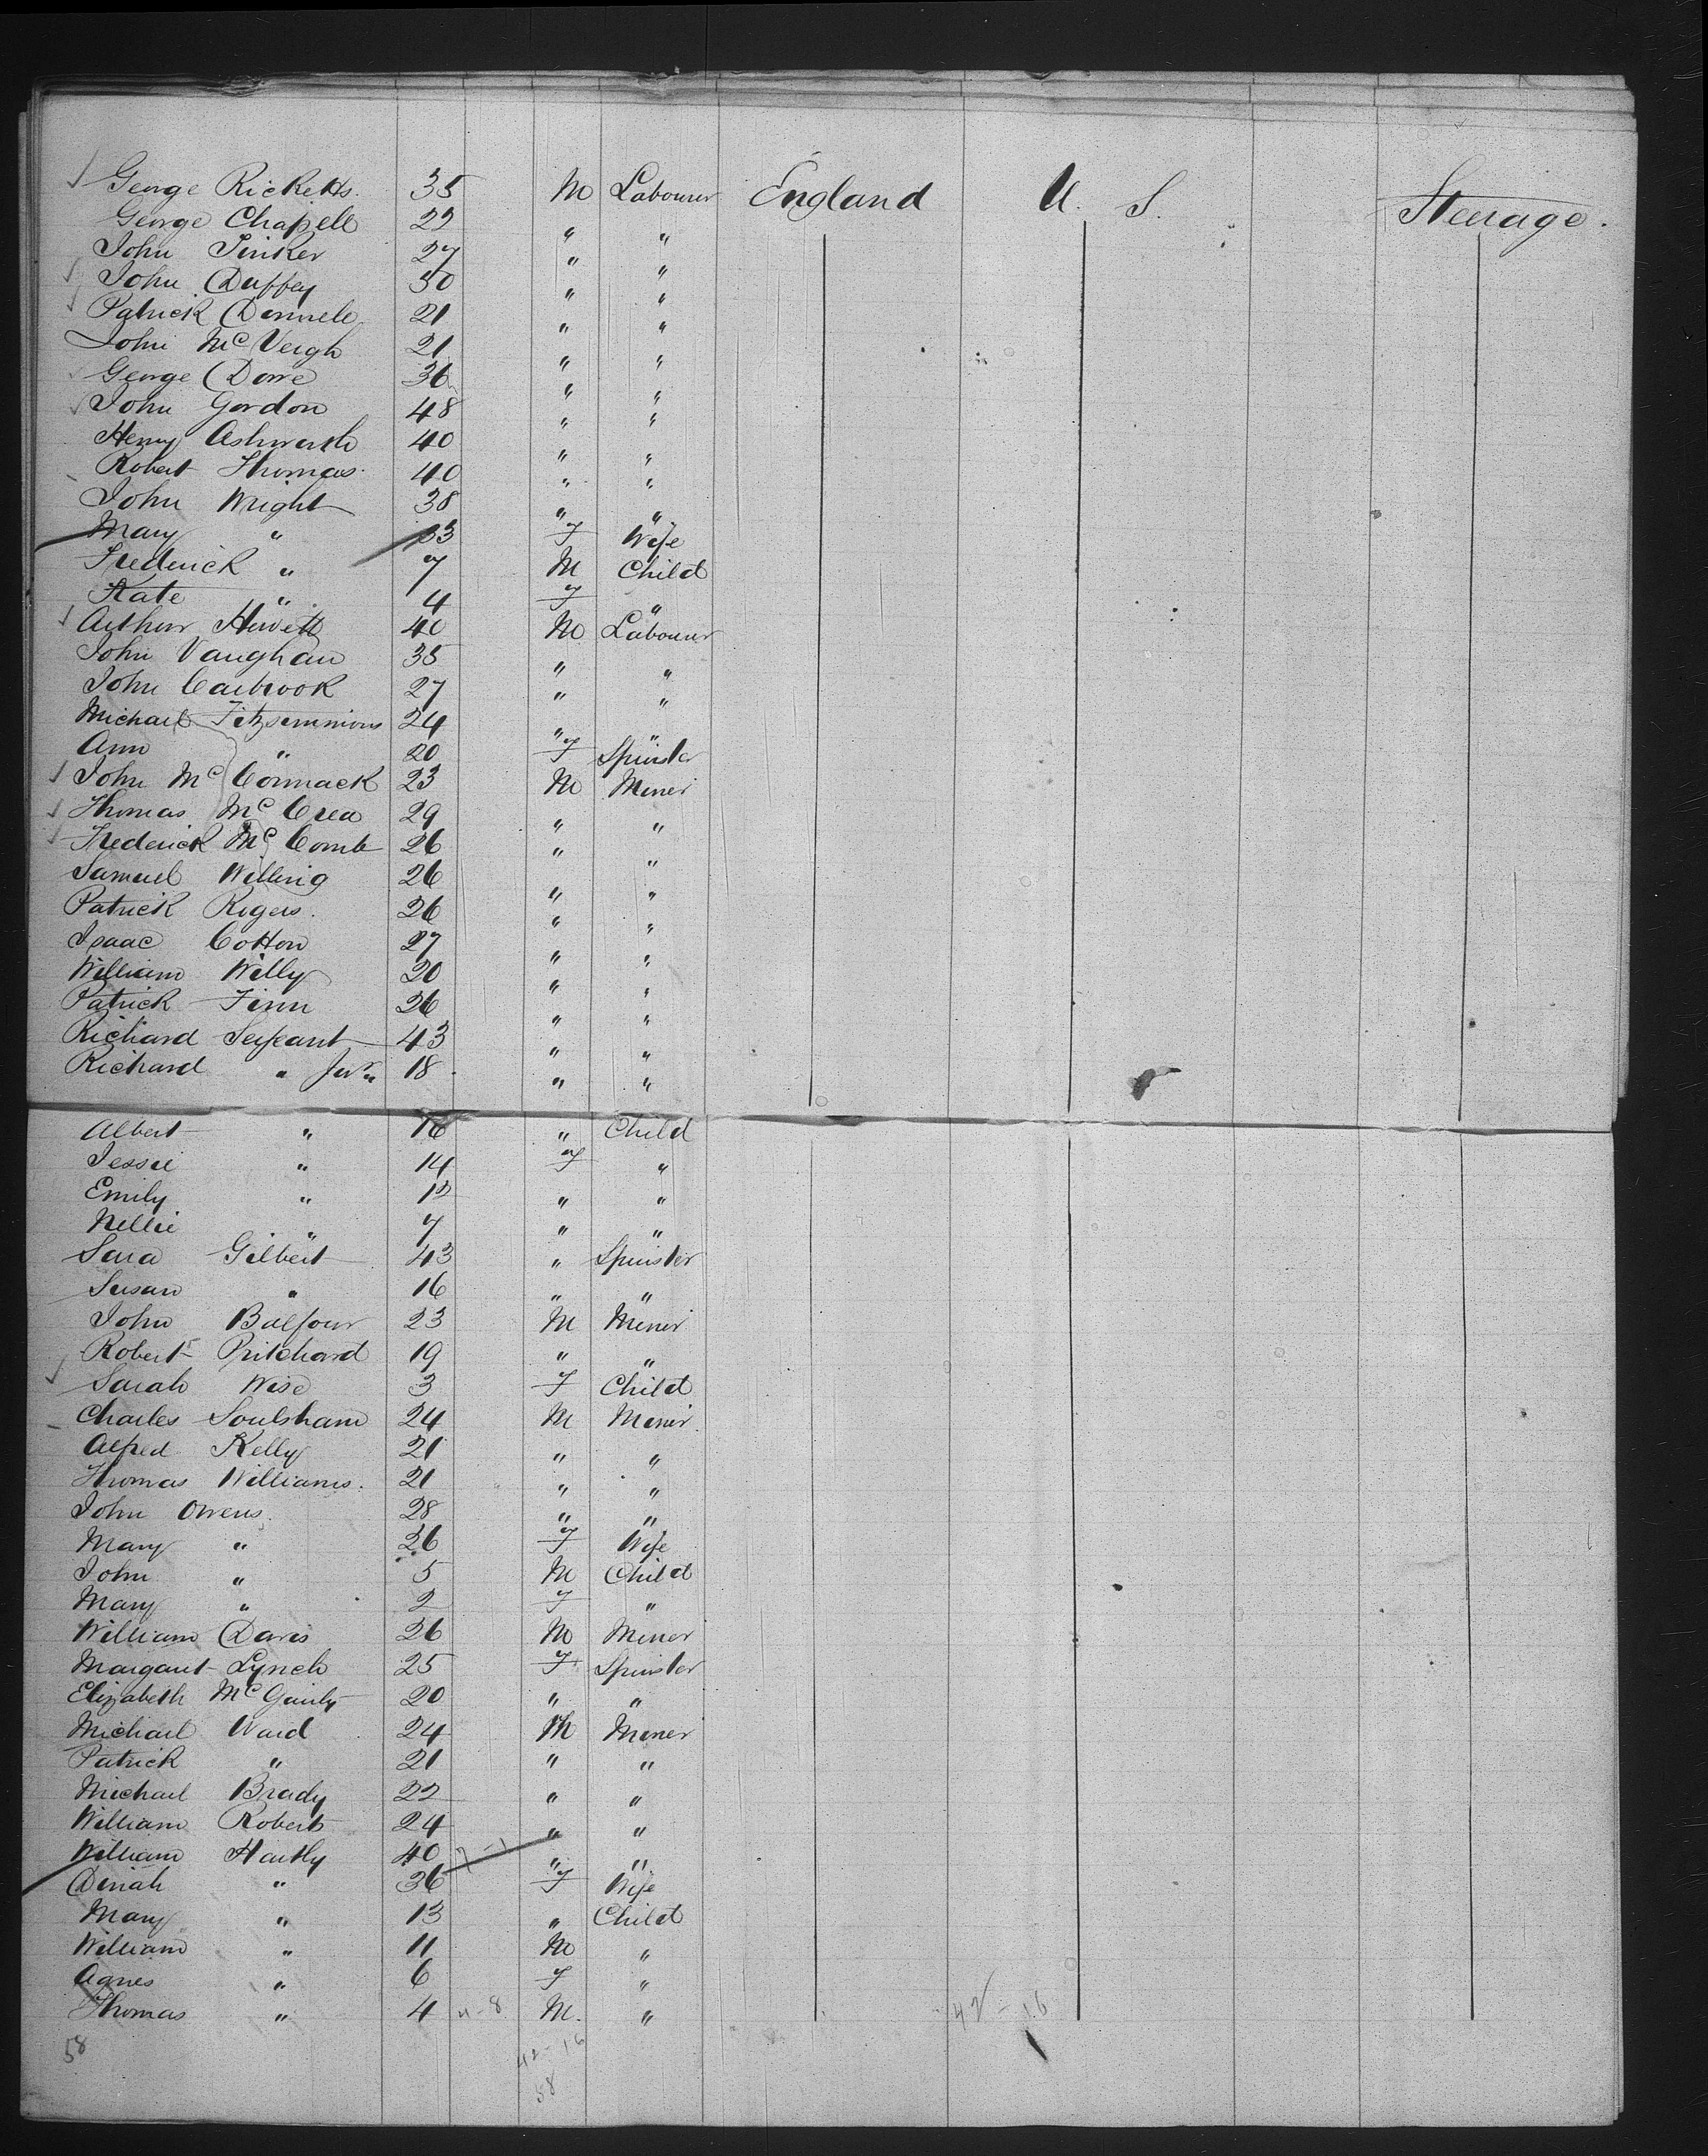 George Ricketts. 35 M Labourer England U. S. Steerage.
George Chapell 22 " "
John Tinker 27 " "
John Duffey 30 " "
Patrick Donnele 21 " "
John McVeigh 21 " "
George Dove 36 " "
John Gordon 48 " "
Henry Ashworth 40 " "
Robert Thomas 40 " "
John Wright 38 " "
Mary " 33 F Wife
Frederick " 7 M Child
Kate " 4 F "
Arthur Hewett 40 M Labourer
John Vaughan 35 " "
John Carbrook 27 " "
Michael Fitzsimmions 24 " "
Ann " 20 F Spinster
John McCormack 23 M Miner
Thomas McCrea 29 " "
Frederick McComb 26 " "
Samuel Willing 26 " "
Patrick Rogers. 26 " "
Isaac Cotton 27 " "
William Willy 20 " "
Patrick Finn 26 " "
Richard Serjeant 43 " "
Richard " Junr 18 " "
Albert " 16 " Child
Jessie " 14 F "
Emily " 12 " "
Nellie " 7 " "
Sara Gilbert 43 " Spinster
Susan " 16 " "
John Balfour 23 M Miner
Robert Pritchard 19 " "
Sarah Wise 3 F Child
Charles Soulsham 24 M Miner
Alfred Kelly 21 " "
Thomas Williams. 21 " "
John Owens. 28 " "
Mary " 26 F Wife
John " 5 M Child
Mary " 2 F "
William Davis 26 M Miner
Margaret Lynch 25 F Spinster
Elizabeth 20 " "
Michael Ward 24 M Miner
Patrick " 21 " "
Michael Brady 22 " "
William Roberts 24 " "
William Hartly 40 7-1 " "
Dinah " 36 F Wife
Mary " 13 " Child
William " 11 M "
Agnes " 6 F "
Thomas " 4 4-8 M. " 42-16
58 42-16
58